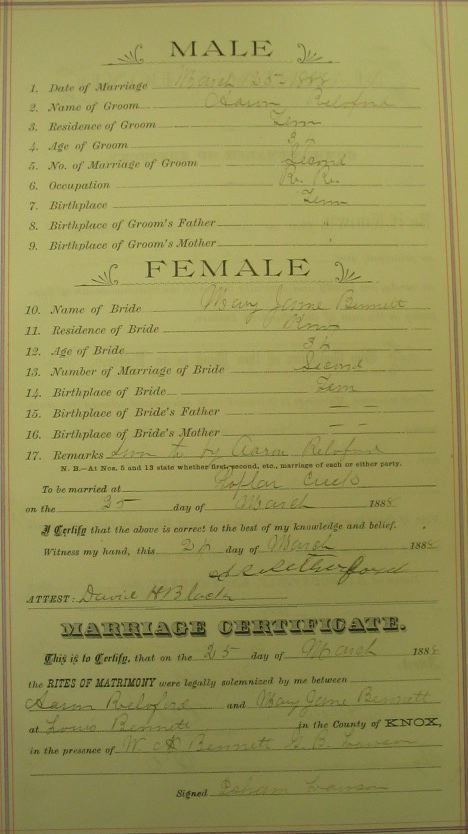 MALE
1. Date of Marriage March 25 1888
2. Name of Groom Aaron Reloford
3. Residence of Groom Tenn
4. Age of Groom
5. No. of Marriage of Groom Second
6. Occupation R. R.
7. Birthplace Tenn
8. Birthplace of Groom's Father
9. Birthplace of Groom's Mother
FEMALE
10. Name of Bride Mary Jane Bennett
11. Residence of Bride Knox
12. Age of Bride
13. Number of Marriage of Bride Second
14. Birthplace of Bride Tenn
15. Birthplace of Bride's Father — —
16. Birthplace of Bride's Mother — —
17. Remarks by Aaron Reloford
N. B.—At Nos. 5 and 13 state whether first, second, etc., marriage of each or either party.
To be married at Poplar Creek
on the 25 day of March 1888
I Certify that the above is correct to the best of my knowledge and belief.
Witness my hand, this day of March 1888
ATTEST: David H Black
MARRIAGE CERTIFICATE.
This is to Certify, that on the 25 day of March 1888
the RITES OF MATRIMONY were legally solemnized by me between
Aaron Reloford and Mary Jane Bennett
at Bennett in the County of KNOX,
in the presence of W Bennett G. B. Lawson
Signed Lawson